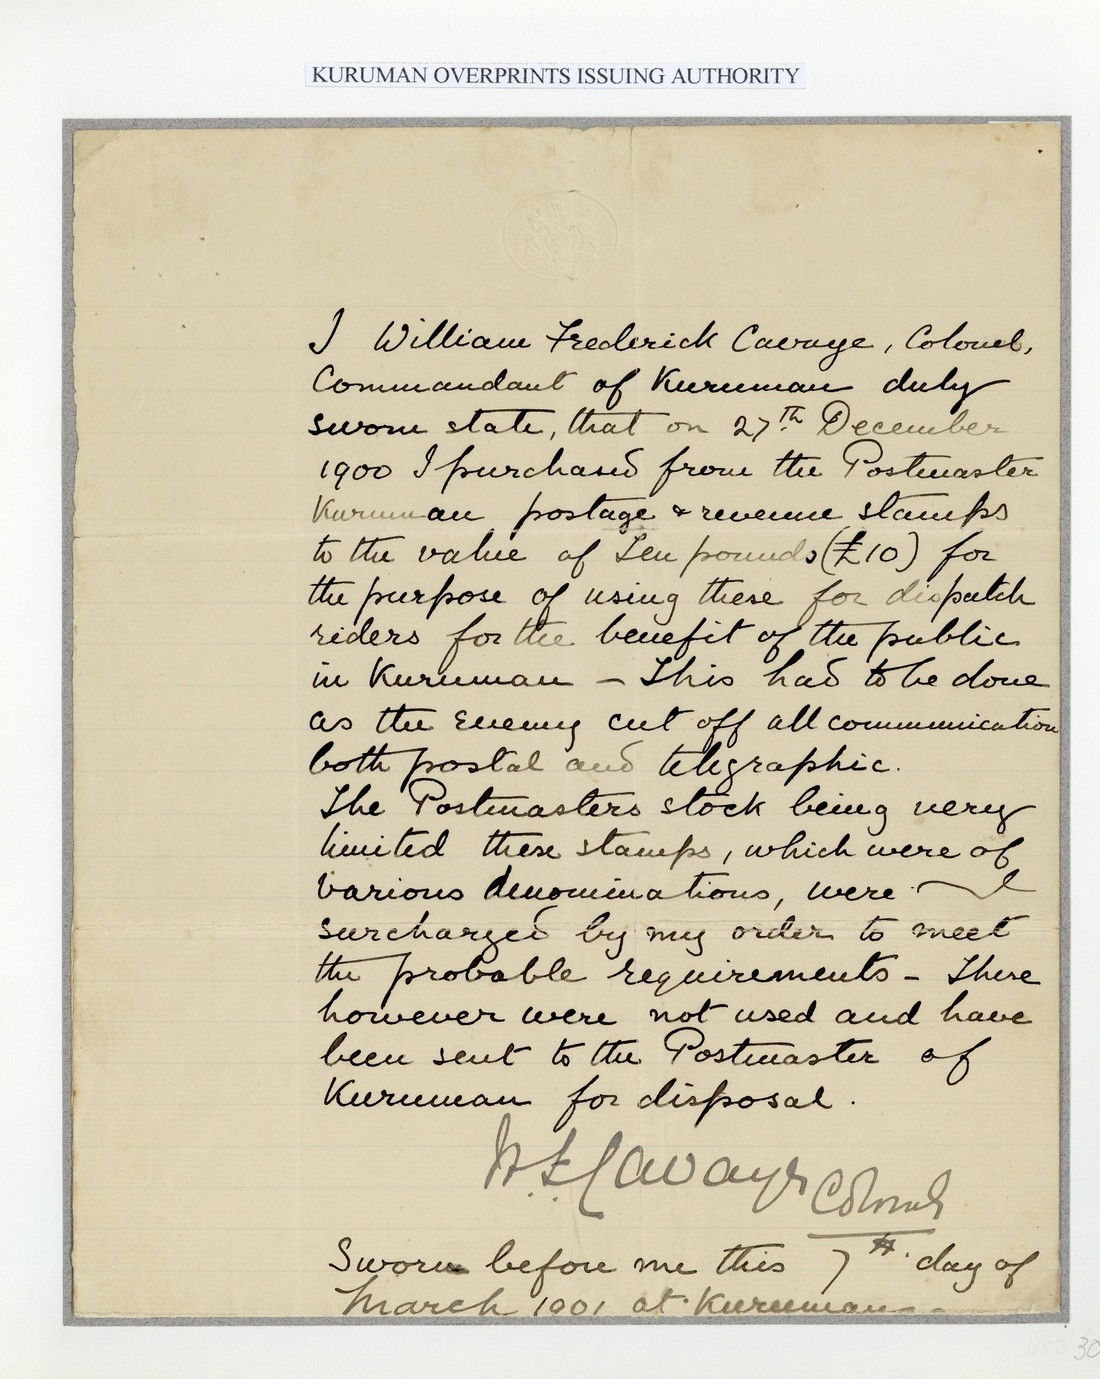 KURUMAN OVERPRINTS ISSUING AUTHORITY
I William Frederick Cavaye, Colonel,
Commandant of Kuruman duly
sworn state, that on 27th December
1900 I purchased from the Postmaster
Kuruman postage & revenue stamps
to the value of Ten pounds (£10) for
the purpose of using these for dispatch
riders for the benefit of the public
in Kuruman – This had to be done
as the Enemy cut off all communication
both postal and telegraphic.
The Postmasters stock being very
limited these stamps, which were of
various denominations, were
surcharged by my order to meet
the probable requirements – These
however were not used and have
been sent to the Postmaster of
Kuruman for disposal.
W. F. Cavaye Colonel
Sworn before me this 7th day of
March 1901 at Kuruman
30